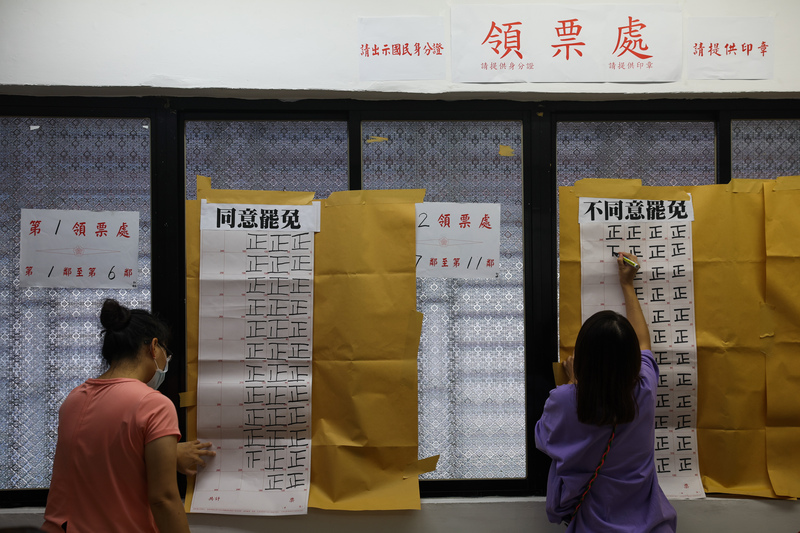 請出示國民身分證
領票處
請提供身分證 請提供印章
請提供印章
第1領票處
第1鄰至第6鄰
同意罷免
正正正
正正正
正正正
正正正
正正正
正正正
正正正
正正正
正正正
下正正
正正
正正
共計 票
2領票處
7鄰至第11鄰
不同意罷免
正正正
下正正
正正
正正
正正
正正
正正
正正
正正
正正
正正
正正